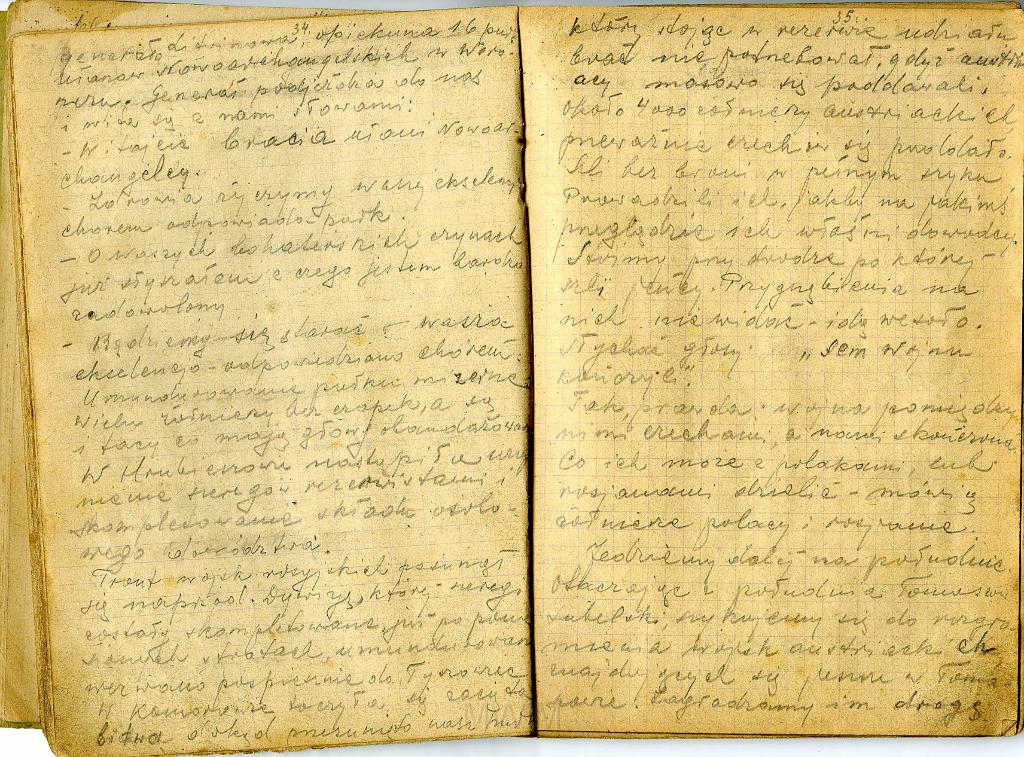 34
generała Litwinowa, opiekuna 16 puł
ułanów Nowoarchangielskich w Woro-
neżu. Generał podjeżdża do nas
i wita się z nami słowami:
- Witajcie bracia ułani Nowoar-
changelcy.
- Zdrowia życzymy waszej ekscelency
chórem odpowiada pułk.
- O waszych bohaterskich czynach
już słyszałem z czego jestem bardzo
zadowolony
- Będziemy się starać - wasza
ekselencjo - odpowiedziano chórem.
Umundurowanie pułku mizerne
wielu żołnierzy bez czapek, a są
i tacy co mają głowy obandażowan
W Hrubieszowie nastąpiło uzu
nienie szeregów rezerwistami i
skompletowanie składu osobo-
wego dowództwa.
Front wojsk rosyjskich posunął
się naprzód. Dywizję, której szeregi
zostały skompletowane, już po
stratach, umundurowan
wezwano pospiesznie do Tyszowiec
W Komorowie toczyła się zacięta
bitwa a stąd przerzucono nasz pułk
35
który stojąc w rezerwie udziału
brać nie potrzebował, gdyż austr
acy masowo się poddawali.
Około 4000 żołnierzy austriackich
przeważnie czechów się poddało.
Szli bez broni w pełnym szyku
Prowadzili ich, jakby na jakimś
przeglądzie ich właśni dowódcy.
Stoimy przy drodze po której -
szli jeńcy. Przygnębienia na
nich nie widać - idą wesoło.
Słychać głosy: "sem wojnu
kończyli".
Tak, prawda. wojna pomiędzy
nimi czechami, a nami skończona
Co ich może z polakami, lub
rosjanami dzielić - mówią
żołnierze polacy i rosjanie.
Jedziemy dalej na południe.
Otaczając z południa Tomaszów
Lubelski, szykujemy się do rozgro
mienia wojsk austriackich
znajdujących się jeszcze w Toma-
szowie. Zagradzamy im drogę